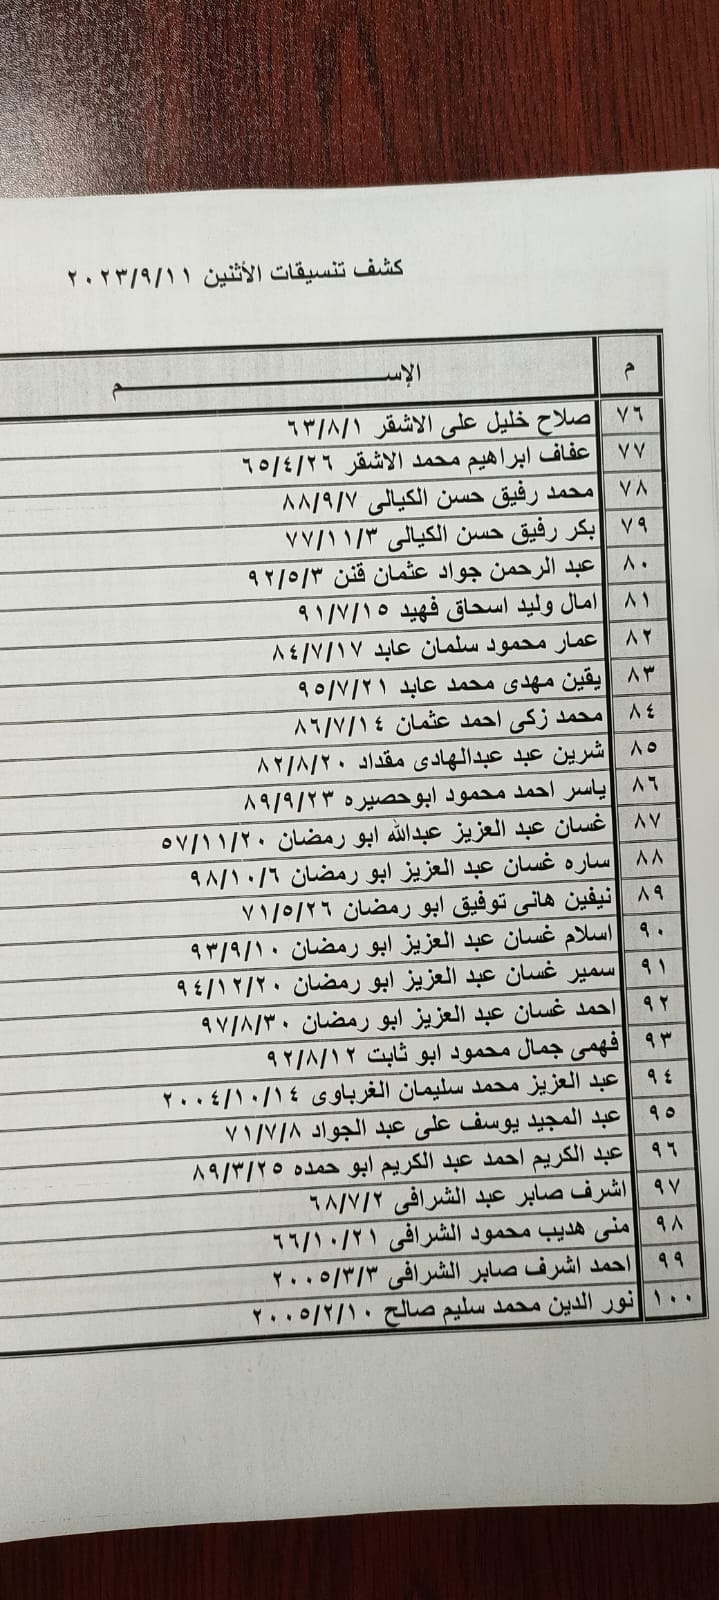 كشف تنسيقات الأثنين ٢٠٢٣/٩/١١
م الإســـــــــــــــــم
٧٦ صلاح خليل على الاشقر ٦٣/٨/١
٧٧ عفاف ابراهيم محمد الاشقر ٦٥/٤/٢٦
٧٨ محمد رفيق حسن الكيالى ٨٨/٩/٧
٧٩ بكر رفيق حسن الكيالى ٧٧/١١/٣
٨٠ عبد الرحمن جواد عثمان قنن ٩٢/٥/٣
٨١ امال وليد اسحاق فهيد ٩١/٧/١٥
٨٢ عمار محمود سلمان عابد ٨٤/٧/١٧
٨٣ يقين مهدى محمد عابد ٩٥/٧/٢١
٨٤ محمد زكى احمد عثمان ٨٦/٧/١٤
٨٥ شرين عبد عبدالهادى مقداد ٨٢/٨/٢٠
٨٦ ياسر احمد محمود ابوحصيره ٨٩/٩/٢٣
٨٧ غسان عبد العزيز عبدالله ابو رمضان ٥٧/١١/٢٠
٨٨ ساره غسان عبد العزيز ابو رمضان ٩٨/١٠/٦
٨٩ نيفين هانى توفيق ابو رمضان ٧١/٥/٢٦
٩٠ اسلام غسان عبد العزيز ابو رمضان ٩٣/٩/١٠
٩١ سمير غسان عبد العزيز ابو رمضان ٩٤/١٢/٢٠
٩٢ احمد غسان عبد العزيز ابو رمضان ٩٧/٨/٣٠
٩٣ فهمى جمال محمود ابو ثابت ٩٢/٨/١٢
٩٤ عبد العزيز محمد سليمان الغرباوى ٢٠٠٤/١٠/١٤
٩٥ عبد المجيد يوسف على عبد الجواد ٧١/٧/٨
٩٦ عبد الكريم احمد عبد الكريم ابو حمده ٨٩/٣/٢٥
٩٧ اشرف صابر عبد الشرافى ٦٨/٧/٢
٩٨ منى هديب محمود الشرافى ٦٦/١٠/٢١
٩٩ احمد اشرف صابر الشرافى ٢٠٠٥/٣/٣
١٠٠ نور الدين محمد سليم صالح ٢٠٠٥/٢/١٠